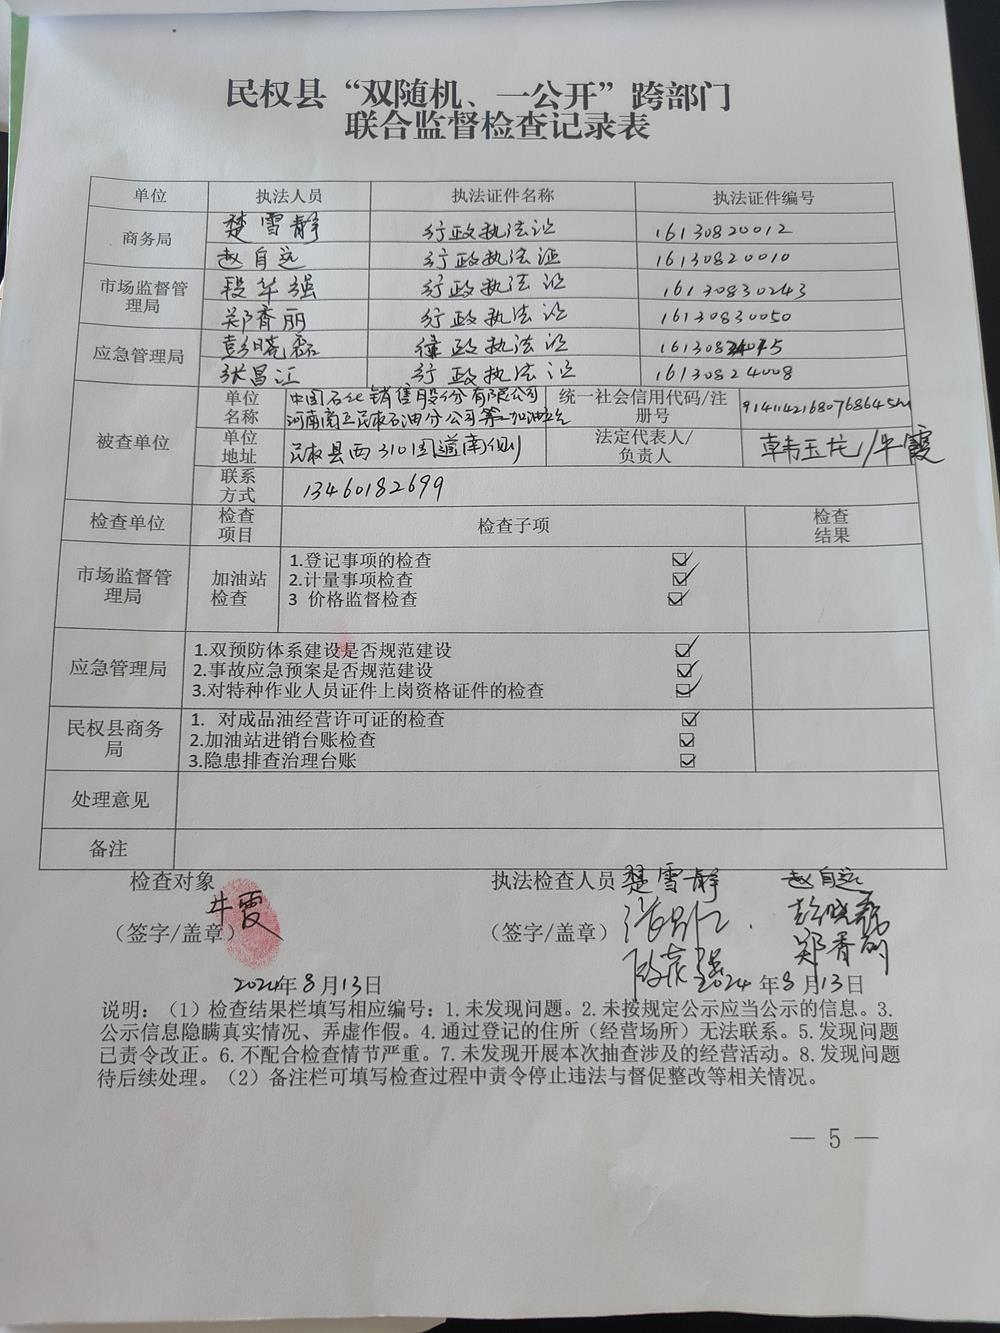 民权县“双随机、一公开”跨部门
联合监督检查记录表
单位 执法人员 执法证件名称 执法证件编号
商务局 楚雪静 行政执法证 16130820012
赵自远 行政执法证 16130820010
市场监督管理局 段华强 行政执法证 16130830243
郑香丽 行政执法证 16130830050
应急管理局 彭晓磊 行政执法证
张昌江 行政执法证 16130824008
被查单位 单位名称 中国石化销售股份有限公司
河南商丘民权石油分公司第二加油站
统一社会信用代码/注册号
单位地址 民权县西310国道南侧 法定代表人/负责人 韩玉龙/牛霞
联系方式 13460182699
检查单位 检查项目 检查子项 检查结果
市场监督管理局 加油站检查
1.登记事项的检查 ☑
2.计量事项检查 ☑
3 价格监督检查 ☑
应急管理局
1.双预防体系建设是否规范建设 ☑
2.事故应急预案是否规范建设 ☑
3.对特种作业人员证件上岗资格证件的检查 ☑
民权县商务局
1. 对成品油经营许可证的检查 ☑
2.加油站进销台账检查 ☑
3.隐患排查治理台账 ☑
处理意见
备注
检查对象 执法检查人员 楚雪静 赵自远
牛霞 张昌江 彭晓磊
（签字/盖章） （签字/盖章） 段华强 郑香丽
2024年8月13日 2024年8月13日
说明：（1）检查结果栏填写相应编号：1.未发现问题。2.未按规定公示应当公示的信息。3.
公示信息隐瞒真实情况、弄虚作假。4.通过登记的住所（经营场所）无法联系。5.发现问题
已责令改正。6.不配合检查情节严重。7.未发现开展本次抽查涉及的经营活动。8.发现问题
待后续处理。（2）备注栏可填写检查过程中责令停止违法与督促整改等相关情况。
— 5 —